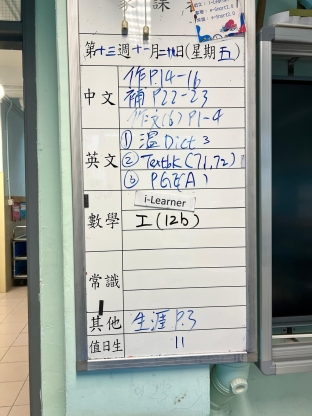 家課
第十三週十一月二十九日(星期五)
中文
作P.14-16
補 P.22-23
作文(6) P.1-4
英文
① 溫 Dict 3
② Textbk (71,72)
③ PGE(A)
i-Learner
數學
工(12b)
常識
其他
生涯 P.3
值日生
11